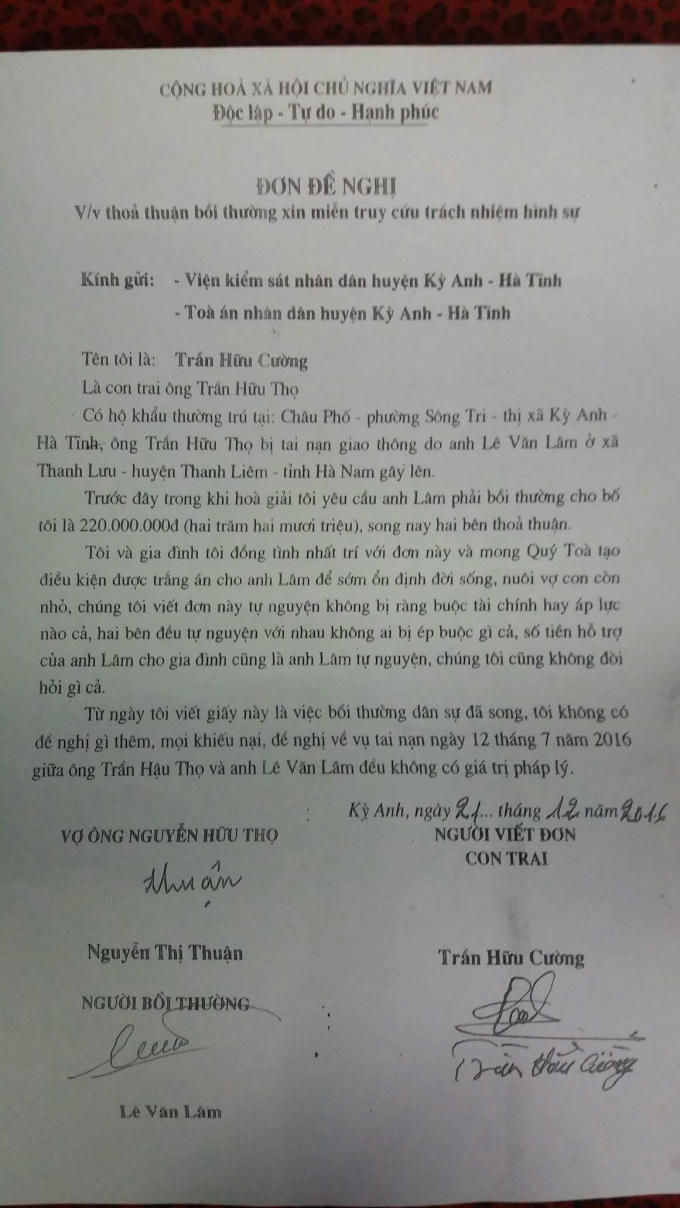 CỘNG HOÀ XÃ HỘI CHỦ NGHĨA VIỆT NAM
Độc lập - Tự do - Hạnh phúc
ĐƠN ĐỀ NGHỊ
V/v thoả thuận bồi thường xin miễn truy cứu trách nhiệm hình sự
Kính gửi: - Viện kiểm sát nhân dân huyện Kỳ Anh - Hà Tĩnh
- Toà án nhân dân huyện Kỳ Anh - Hà Tĩnh
Tên tôi là: Trần Hữu Cường
Là con trai ông Trần Hữu Thọ
Có hộ khẩu thường trú tại: Châu Phố - phường Sông Trí - thị xã Kỳ Anh -
Hà Tĩnh, ông Trần Hữu Thọ bị tai nạn giao thông do anh Lê Văn Lâm ở xã
Thanh Lưu - huyện Thanh Liêm - tỉnh Hà Nam gây lên.
Trước đây trong khi hoà giải tôi yêu cầu anh Lâm phải bồi thường cho bố
tôi là 220.000.000đ (hai trăm hai mươi triệu), song nay hai bên thoả thuận.
Tôi và gia đình tôi đồng tình nhất trí với đơn này và mong Quý Toà tạo
điều kiện được trắng án cho anh Lâm để sớm ổn định đời sống, nuôi vợ con còn
nhỏ, chúng tôi viết đơn này tự nguyện không bị ràng buộc tài chính hay áp lực
nào cả, hai bên đều tự nguyện với nhau không ai bị ép buộc gì cả, số tiền hỗ trợ
của anh Lâm cho gia đình cũng là anh Lâm tự nguyện, chúng tôi cũng không đòi
hỏi gì cả.
Từ ngày tôi viết giấy này là việc bồi thường dân sự đã song, tôi không có
đề nghị gì thêm, mọi khiếu nại, đề nghị về vụ tai nạn ngày 12 tháng 7 năm 2016
giữa ông Trần Hậu Thọ và anh Lê Văn Lâm đều không có giá trị pháp lý.
Kỳ Anh, ngày 21... tháng 12 năm 2016
VỢ ÔNG NGUYỄN HỮU THỌ NGƯỜI VIẾT ĐƠN
CON TRAI
Thuận
Nguyễn Thị Thuận Trần Hữu Cường
NGƯỜI BỒI THƯỜNG
Trần Hữu Cường
Lê Văn Lâm